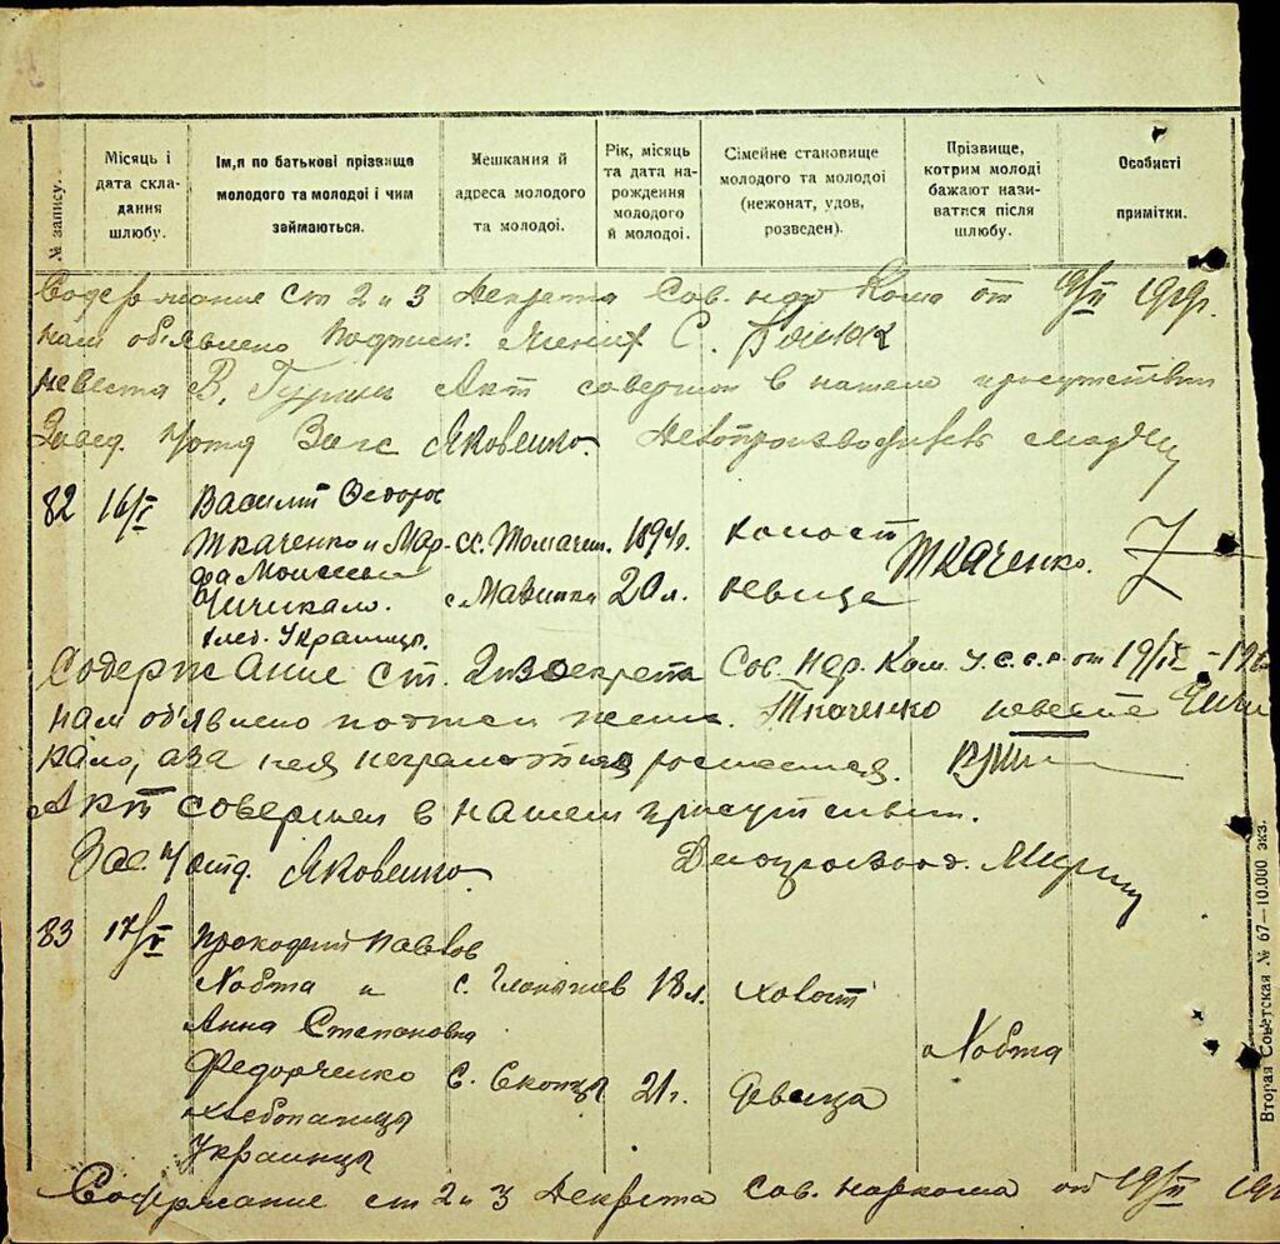 № запису.
Місяць і дата складання шлюбу.
Ім,я по батькові прізвище молодого та молодоі і чим займаються.
Мешкання й адреса молодого та молодоі.
Рік, місяць та дата народження молодого й молодоі.
Сімейне становище молодого та молодоі (нежонат, удов, розведен).
Прізвище, котрим молоді бажают називатися після шлюбу.
Особисті примітки.
Содержание Ст 2 и 3 Декрета Сов. нар Кома от 19/II 1919г.
нам об'явлено Подписи: Жених С.
невеста В. Акт совершен в нашем присутствии
Завед. п/отд Загс Яковенко. Делопроизводитель
82 16/V Василий Федоров
Ткаченко и Мар- 1894г. холост Ткаченко.
фа Моисеева
Чичикало. 20 л. девица
хлеб. Украинцы.
Содержание ст. 2 и 3 декрета Сов. Нар. Ком. У.С.С.Р. от 19/II -19
нам об'явлено подписи жених. Ткаченко невеста Чичи
кало, а за нея неграмотную росписался.
Акт совершен в нашем присутствии.
Зав. п/отд. Яковенко Делопроизвод.
83 17/V Прокофий Павлов
Хобта и с. 18 л. холост
Анна Степановна
Хобта
Федорченко С. Скопцы 21 г. девица
хлебопашцы
Украинцы
Содержание ст 2 и 3 Декрета Сов. наркома от 19/II 191
Вторая Советская № 67—10.000 экз.